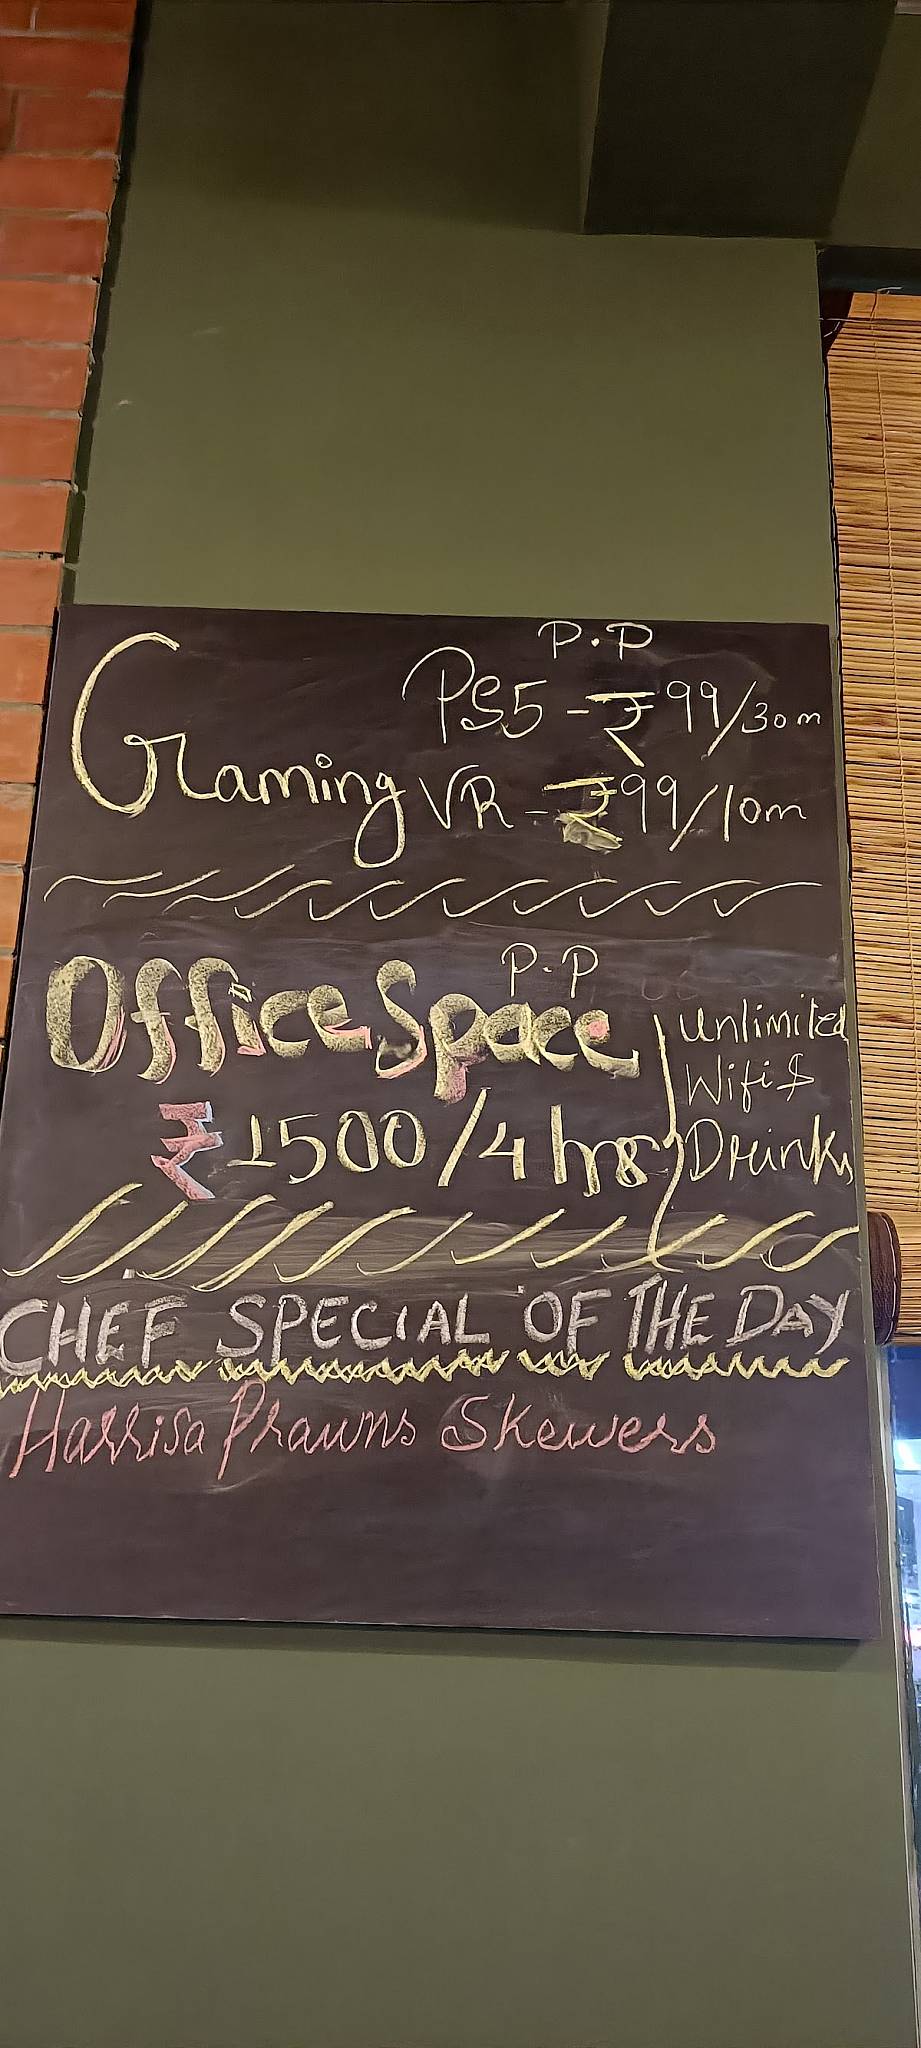 P.P
Gaming PS5 - ₹99/30m
VR - ₹99/10m
P.P
Office Space
Unlimited
Wifi &
Drinks
₹ 1500/4 hrs
CHEF SPECIAL OF THE DAY
Harrisa Prawns Skewers